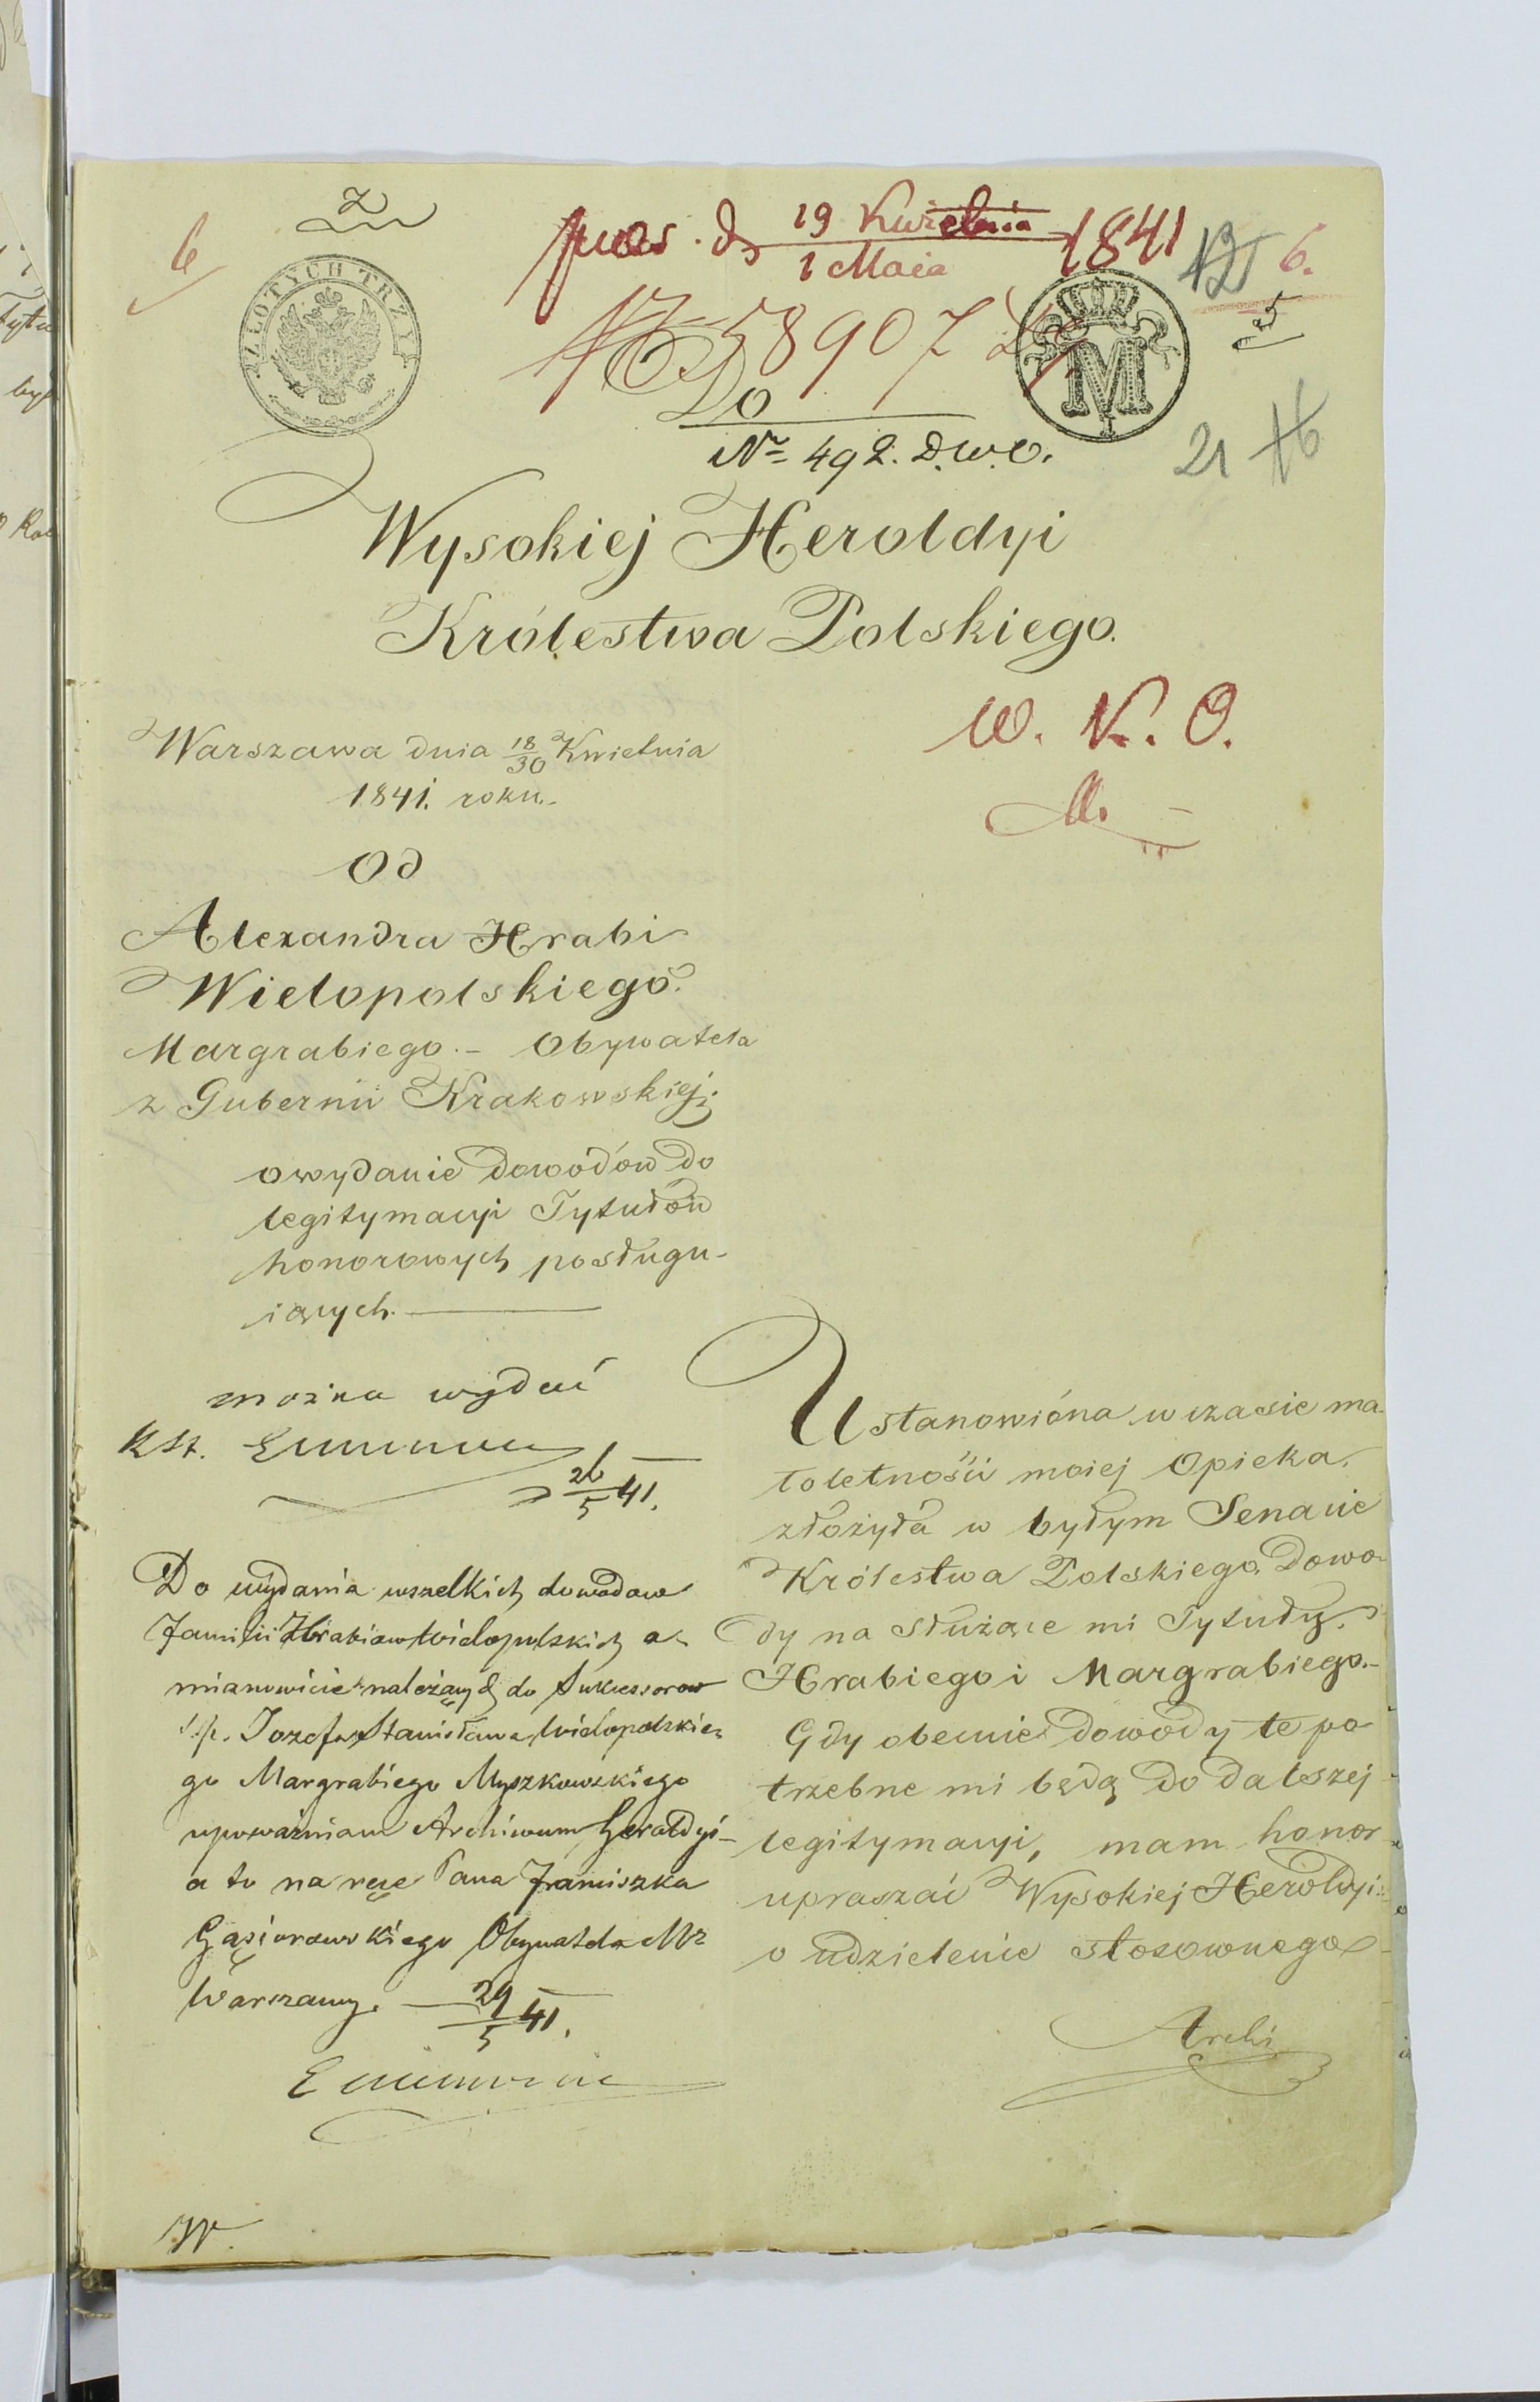 6
pras. d. 19 Kwietnia 1841
1 Maia
6.
5
ZŁOTYCH TRZY
M
I
№ 58907
Do
№ 492. D.W.O.
21 16
Wysokiej Heroldyi
Królestwa Polskiego.
W. K. O.
M.
Warszawa dnia 18/30 Kwietnia
1841. roku.
Od
Alexandra Hrabi
Wielopolskiego.
Margrabiego. – Obywatela
z Gubernii Krakowskiej;
o wydanie dowodów do
legitymacyi Tytułów
honorowych posługu-
iących.
można wydać
26/5 41.
Do wydania wszelkich dowodow
Familii Hrabiow Wielopolskich a
mianowicie należących do Sukcessorow
ś.p. Jozefa Stanisława Wielopolskie
go Margrabiego Myszkowskiego
upoważniam Archiwum Heraldyi –
a to na ręce Pana Franciszka
Gąsiorowskiego Obywatela Mta
Warszawy. 29/5 41.
Ustanowióna w czasie ma-
łoletnośći moiej Opieka,
złożyła w byłym Senacie
Królestwa Polskiego, Dowo-
dy na służące mi Tytuły
Hrabiego i Margrabiego.–
Gdy obecnie dowody te po
trzebne mi będą do dalszej
legitymacyi, mam honor
upraszać Wysokiej Heroldyi
o udzielenie stosownego
Archi
W.